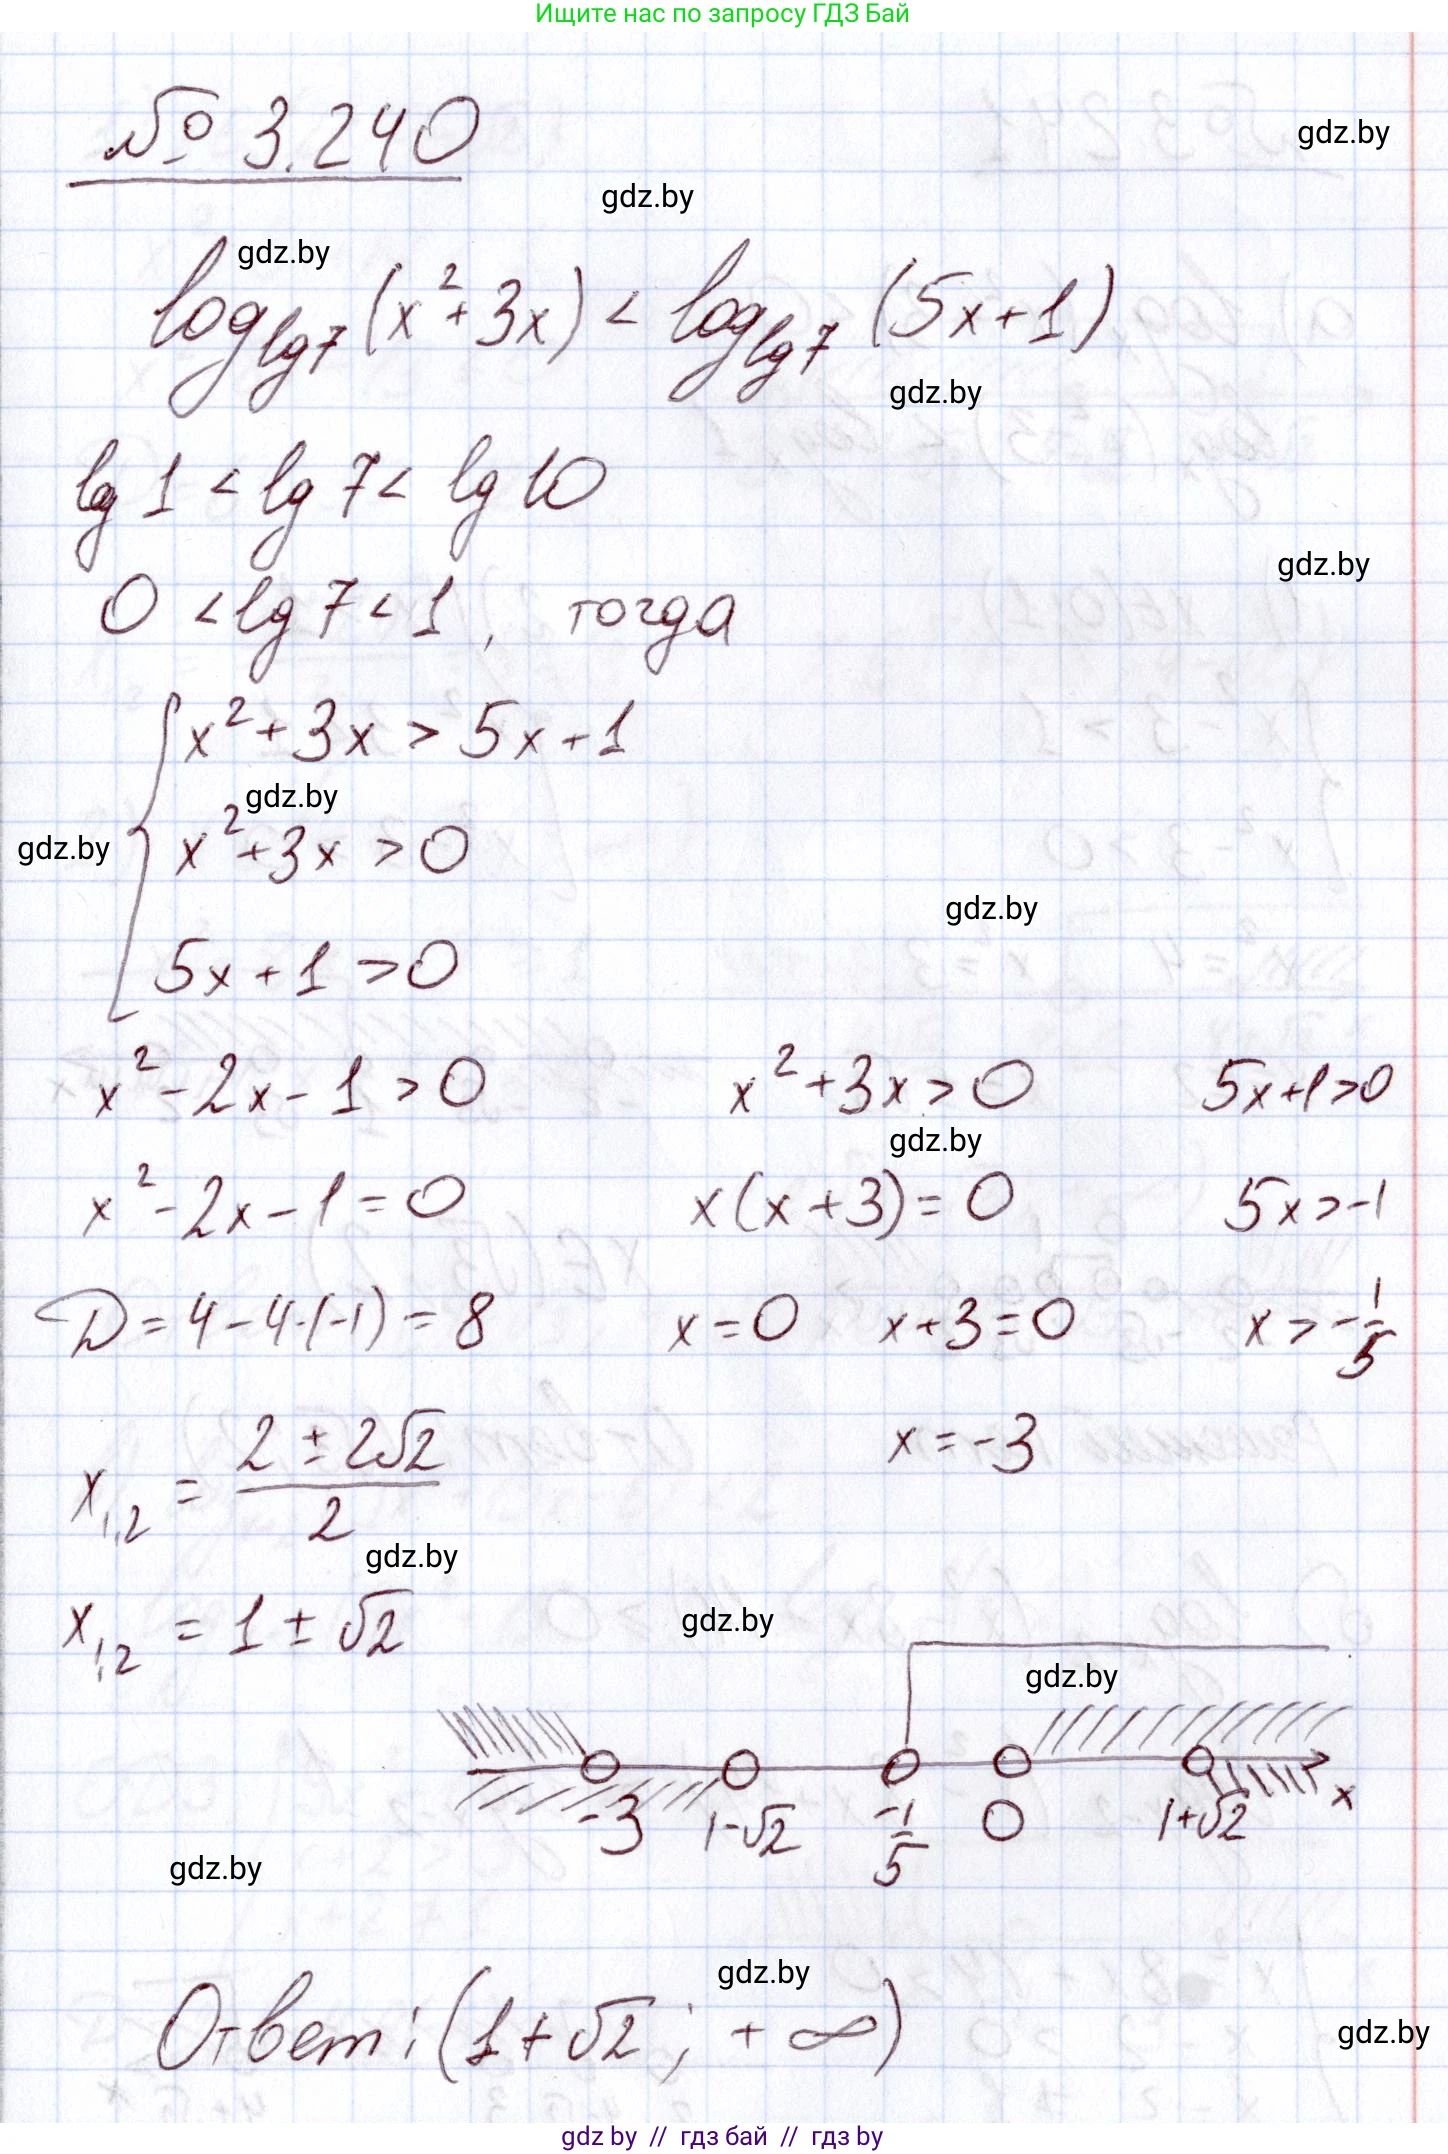 Ищите нас по запросу ГДЗ Бай
№ 3.240
gdz.by
gdz.by
gdz.by
log_{lg7}(x²+3x) < log_{lg7}(5x+1)
gdz.by
lg 1 < lg 7 < lg 10
gdz.by
0 < lg 7 < 1, тогда
x²+3x > 5x+1
gdz.by
x²+3x > 0
gdz.by
gdz.by
5x+1 > 0
x²-2x-1 > 0 x²+3x > 0 5x+1>0
gdz.by
x²-2x-1=0 x(x+3)=0 5x>-1
D=4-4·(-1)=8 x=0 x+3=0 x>-1/5
x_{1,2} = (2±2√2)/2 x=-3
gdz.by
x_{1,2} = 1±√2
gdz.by
gdz.by
-3 1-√2 -1/5 0 1+√2 x
gdz.by
gdz.by
Ответ: (1+√2; +∞)
gdz.by
gdz by // гдз бай // гдз by